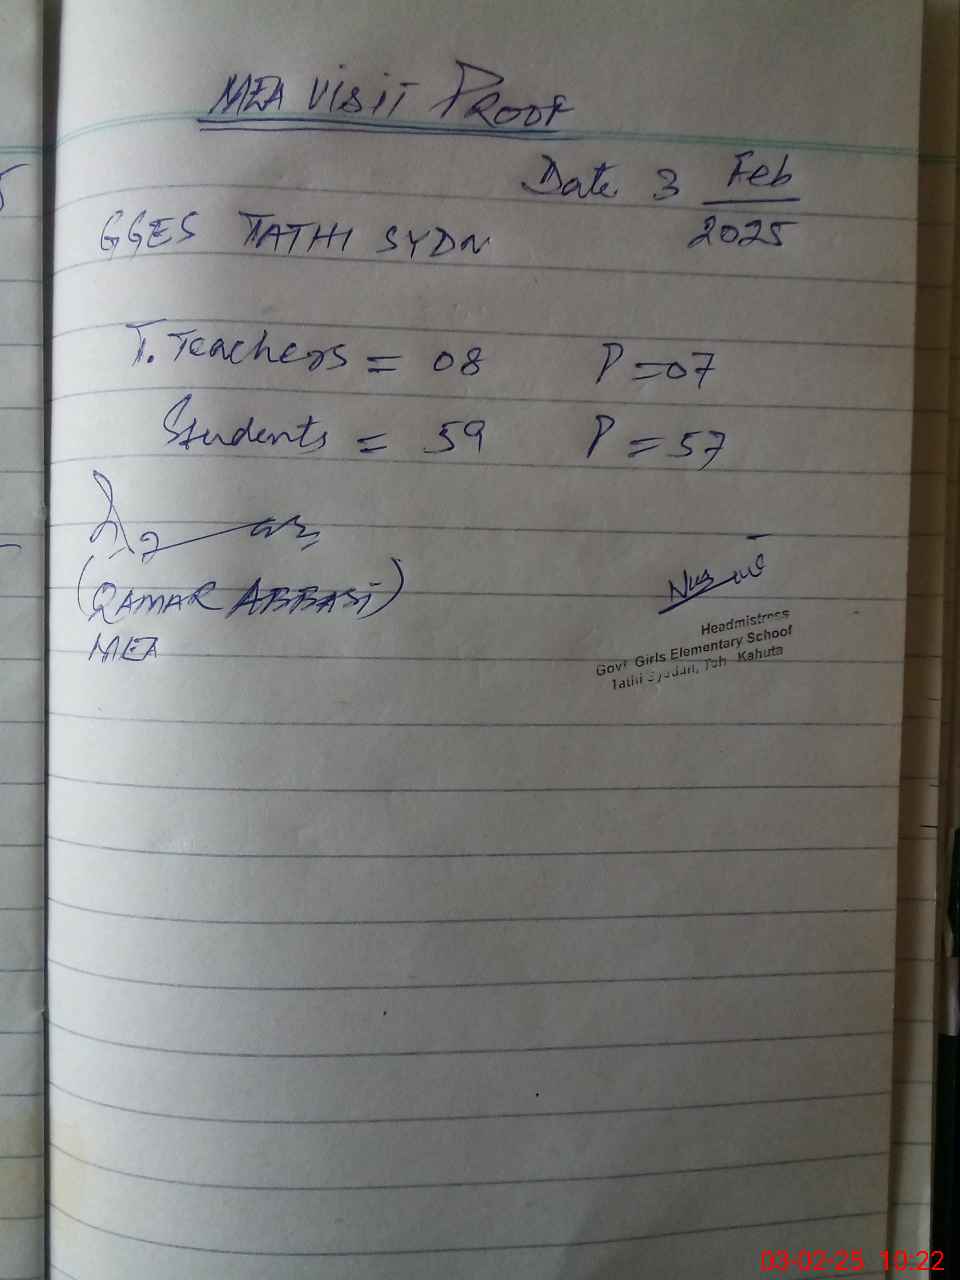 MEA VISIT PROOF
Date 3 Feb
2025
GGES TATHI SYDN
T. Teachers = 08 P = 07
Students = 59 P = 57
(QAMAR ABBASI)
MEA
Headmistress
Govt Girls Elementary School
Tathi Syedan, Teh Kahuta
03-02-25 10:22